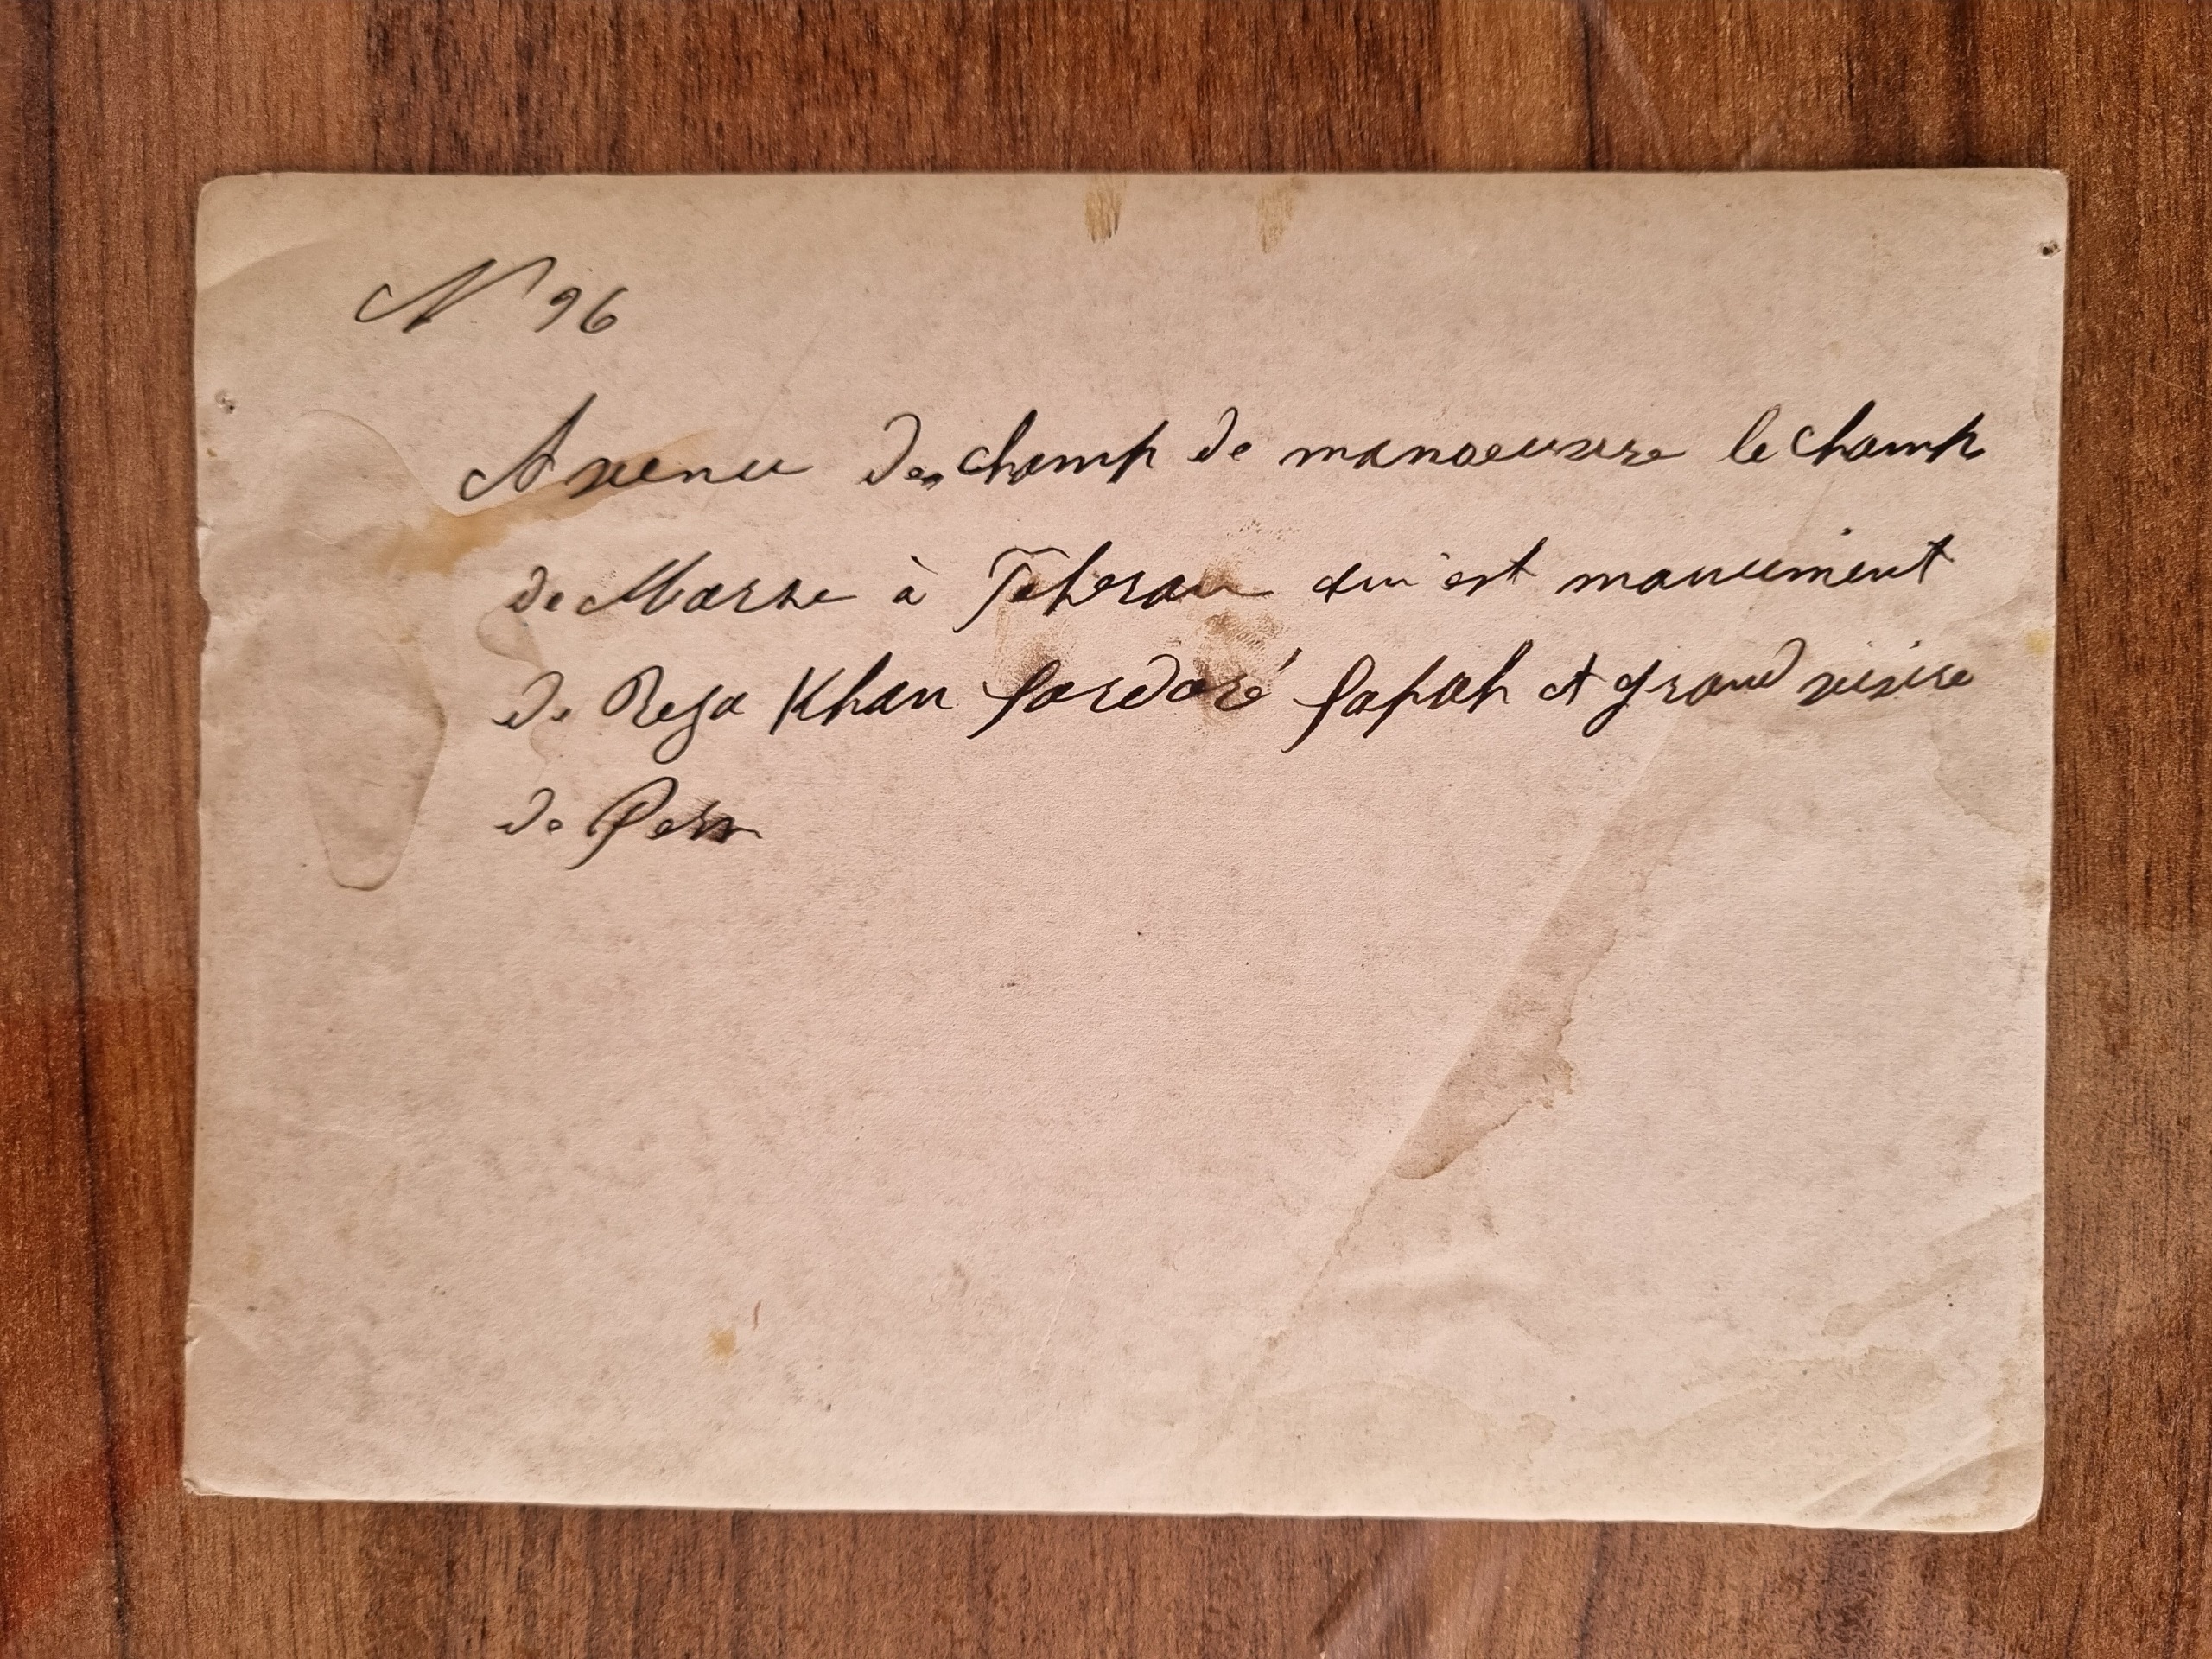 N° 96
Avenu des champ de manoeuvre le champ
de Marse à Teheran qui est monument
de Reza Khan Sardaré Sapah et grand visire
de Pers